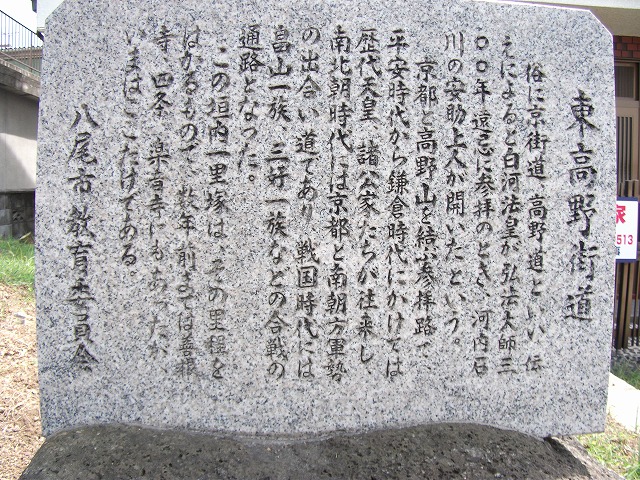 東高野街道
俗に京街道、高野道といい、伝
えによると白河法皇が弘法大師三
〇〇年遠忌に参拝のとき、河内石
川の安助上人が開いたという。
京都と高野山を結ぶ参拝路で、
平安時代から鎌倉時代にかけては
歴代天皇、諸公家たちが往来し、
南北朝時代には京都と南朝方軍勢
の出合い道であり、戦国時代には
畠山一族、三好一族などの合戦の
通路となった。
この垣内一里塚は、その里程を
はかるもので、数年前までは善根
寺、四条、楽音寺にもあったが、
いまはここだけである。
八尾市教育委員会
513